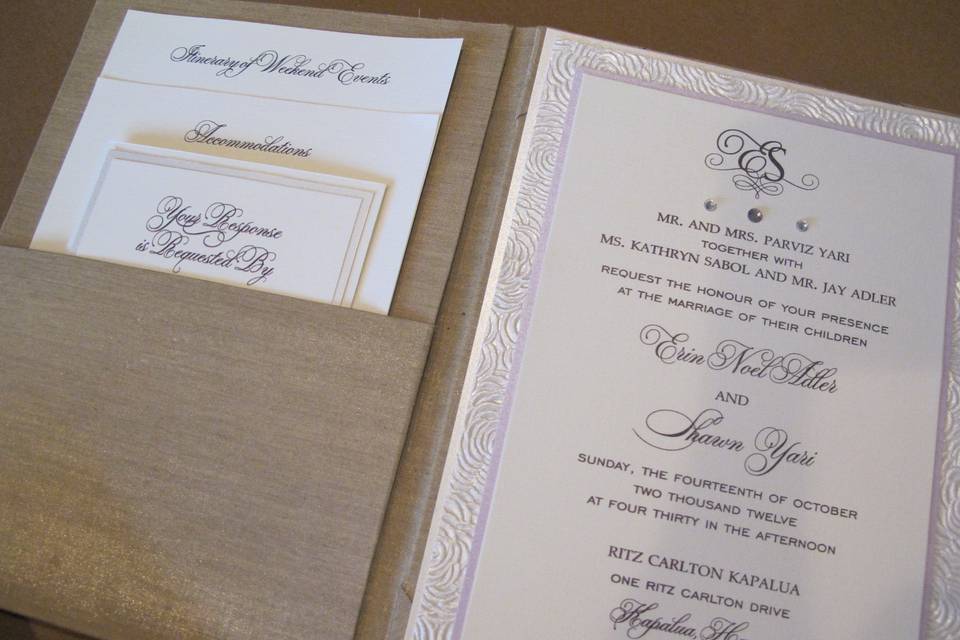 Itinerary of Weekend Events
Accommodations
Your Response
is Requested By
ES
MR. AND MRS. PARVIZ YARI
TOGETHER WITH
MS. KATHRYN SABOL AND MR. JAY ADLER
REQUEST THE HONOUR OF YOUR PRESENCE
AT THE MARRIAGE OF THEIR CHILDREN
Erin Noel Adler
AND
Shawn Yari
SUNDAY, THE FOURTEENTH OF OCTOBER
TWO THOUSAND TWELVE
AT FOUR THIRTY IN THE AFTERNOON
RITZ CARLTON KAPALUA
ONE RITZ CARLTON DRIVE
Kapalua,